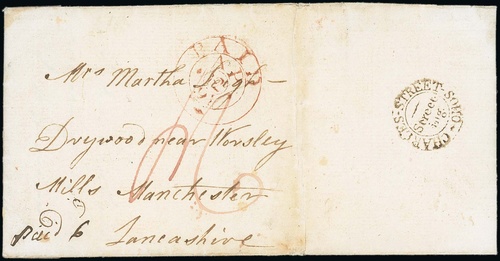 PAID
Mrs Martha Leigh
Drywood near Worsley
Mills Manchester
Lancashire
Paid 6
CHARLES-STREET-SOHO